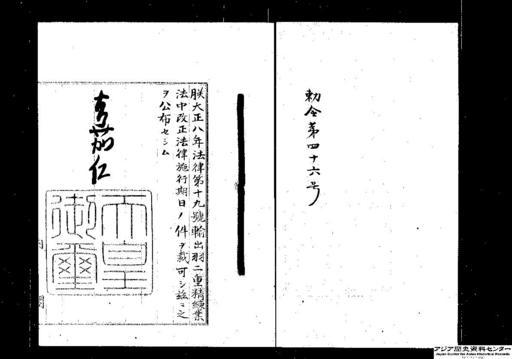 勅令第四十六号
朕大正八年法律第十九號輸出羽二重精練業
法中改正法律施行期日ノ件ヲ裁可シ茲ニ之
ヲ公布セシム
嘉仁
天皇
御璽
アジア歴史資料センター
Japan Center for Asian Historical Records